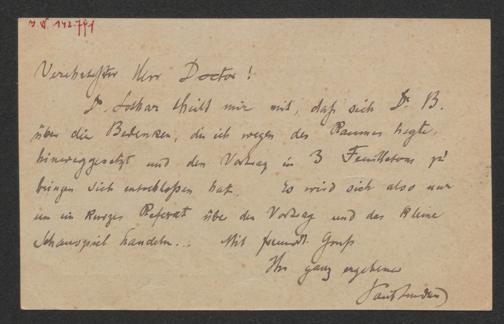 J. N. 142.791
Verehrtester Herr Doctor!
Dr. Lothar theilt mir mit, daß sich Dr. B.
über die Bedenken, die ich wegen des Raumes hegte,
hinweggesetzt und den Vortrag in 3 Feuilletons zu
bringen sich entschloßen hat. Es wird sich also nur
um ein kurzes Referat über den Vortrag und das kleine
Schauspiel handeln. Mit freundl. Gruß
Ihr ganz ergebener